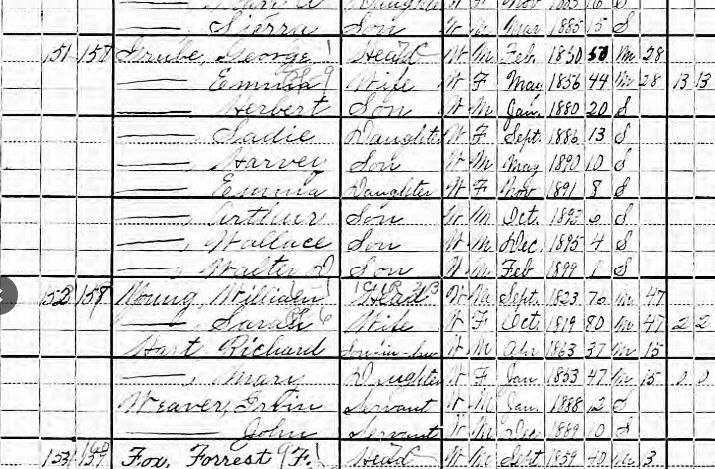 Daughter W F Nov 1883 16 S
—, Sierra Son W M Mar 1885 15 S
151 157 Grube, George Head W M Feb. 1850 50 M 28
—, Emma Wife W F May 1856 44 M 28 13 13
—, Herbert Son W M Jan. 1880 20 S
—, Sadie Daughter W F Sept. 1886 13 S
—, Harvey Son W M May 1890 10 S
—, Emma Daughter W F Nov 1891 8 S
—, Arthur Son W M Oct. 1893 6 S
—, Wallace Son W M Dec. 1895 4 S
—, Walter D Son W M Feb 1899 1 S
152 158 Young, William Head W M Sept. 1823 76 M 47
—, Sarah Wife W F Oct. 1819 80 M 47 2 2
Hart Richard Son-in-law W M Apr 1863 37 M 15
—, Mary Daughter W F Jan. 1853 47 M 15 0 0
Weaver, Irvin Servant W M Jan. 1888 12 S
—, John Servant W M Dec 1889 10 S
153 159 Fox, Forrest F. Head W M Sept 1859 40 M 13